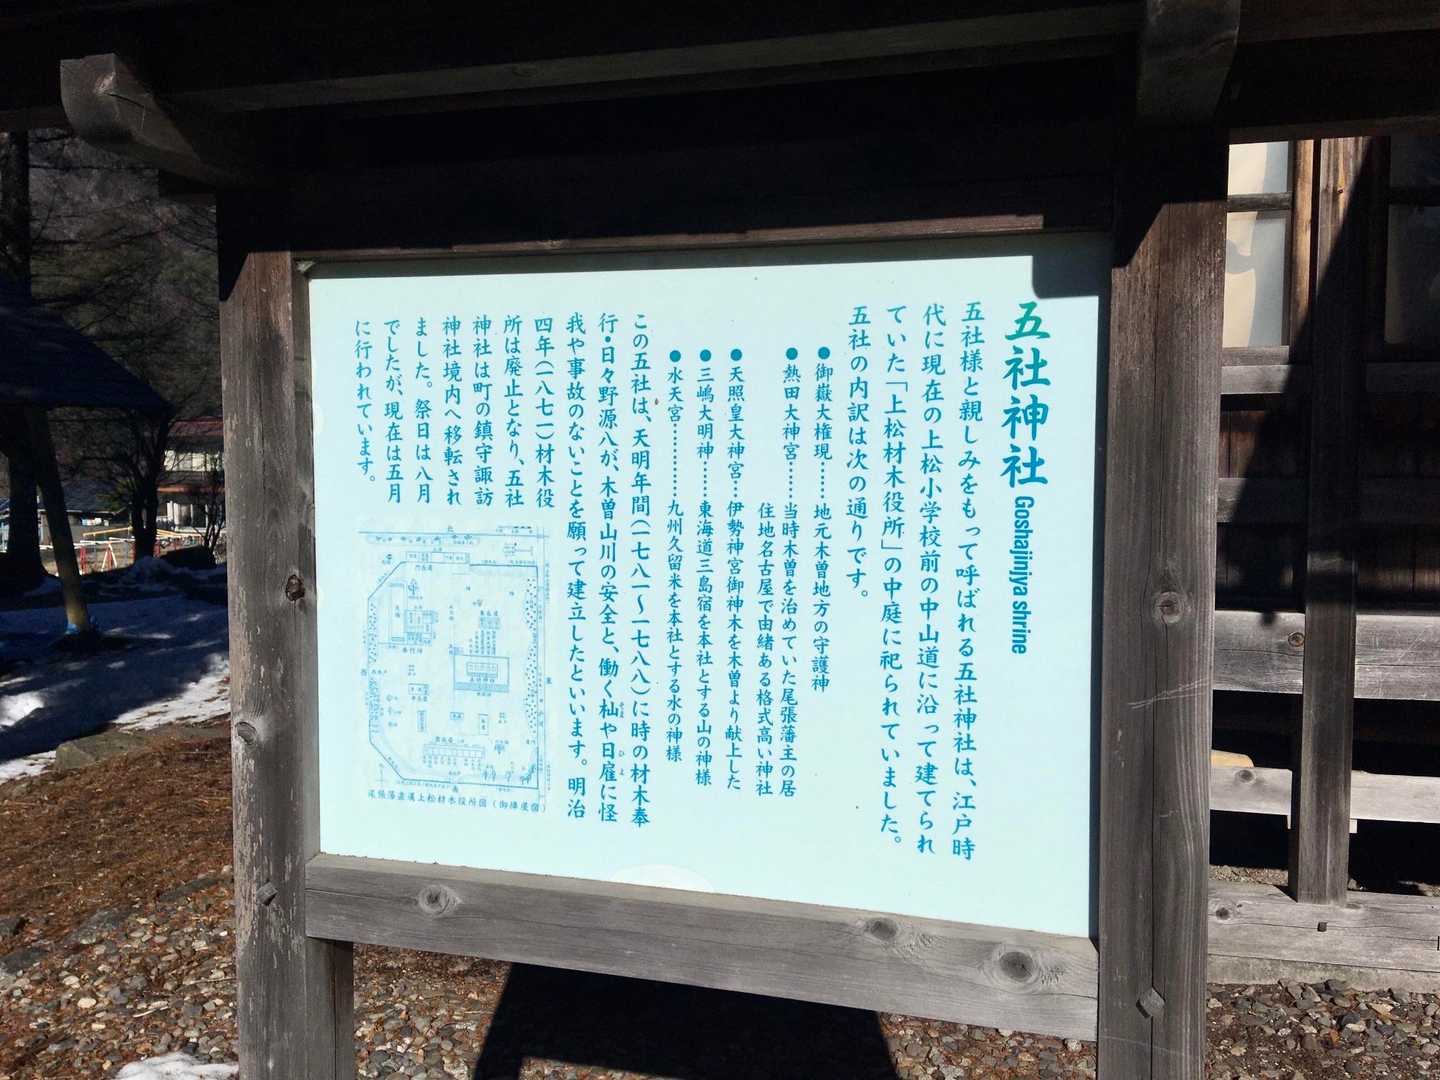 五社神社 Goshajiniya shrine
五社様と親しみをもって呼ばれる五社神社は、江戸時
代に現在の上松小学校前の中山道に沿って建てられ
ていた「上松材木役所」の中庭に祀られていました。
五社の内訳は次の通りです。
●御嶽大権現……地元木曽地方の守護神
●熱田大神宮……当時木曽を治めていた尾張藩主の居
住地名古屋で由緒ある格式高い神社
●天照皇大神宮…伊勢神宮御神木を木曽より献上した
●三嶋大明神……東海道三島宿を本社とする山の神様
●水天宮…………九州久留米を本社とする水の神様
この五社は、天明年間(一七八一〜一七八八)に時の材木奉
行・日々野源八が、木曽山川の安全と、働く杣や日雇に怪
我や事故のないことを願って建立したといいます。明治
四年(一八七一)材木役
所は廃止となり、五社
神社は町の鎮守諏訪
神社境内へ移転され
ました。祭日は八月
でしたが、現在は五月
に行われています。
尾張藩直轄上松材木役所図(御陣屋図)